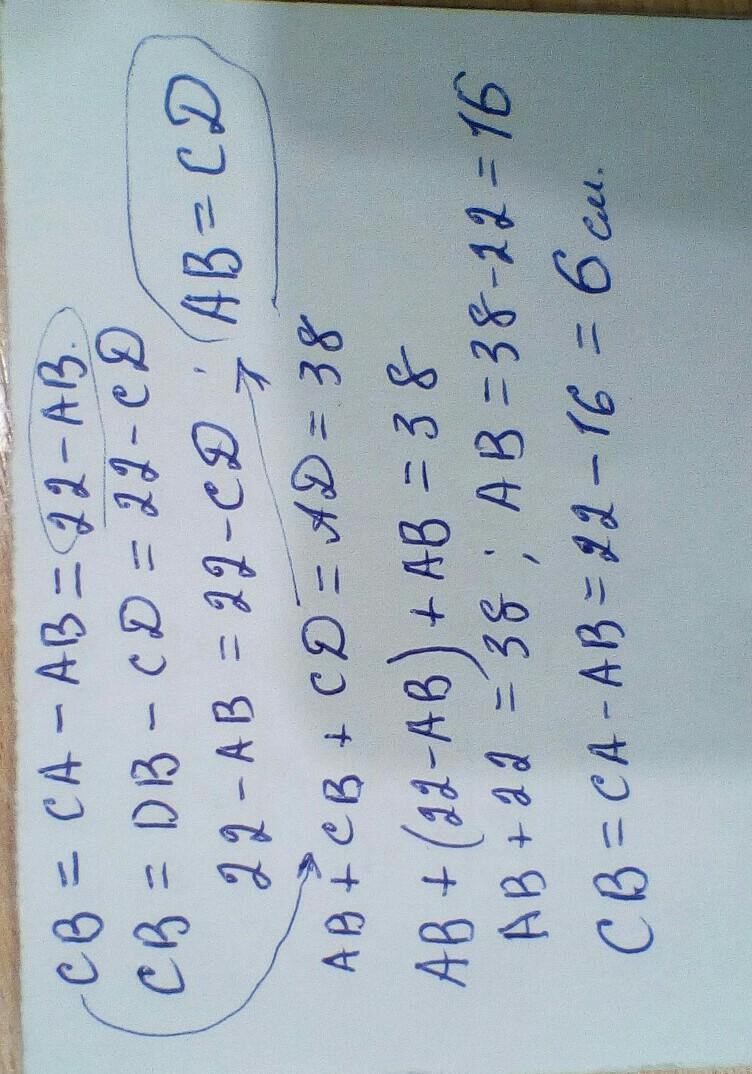 CB = CA - AB = 22 - AB.
CB = DB - CD = 22 - CD
22 - AB = 22 - CD ; AB = CD
AB + CB + CD = AD = 38
AB + (22 - AB) + AB = 38
AB + 22 = 38 ; AB = 38 - 22 = 16
CB = CA - AB = 22 - 16 = 6 см.